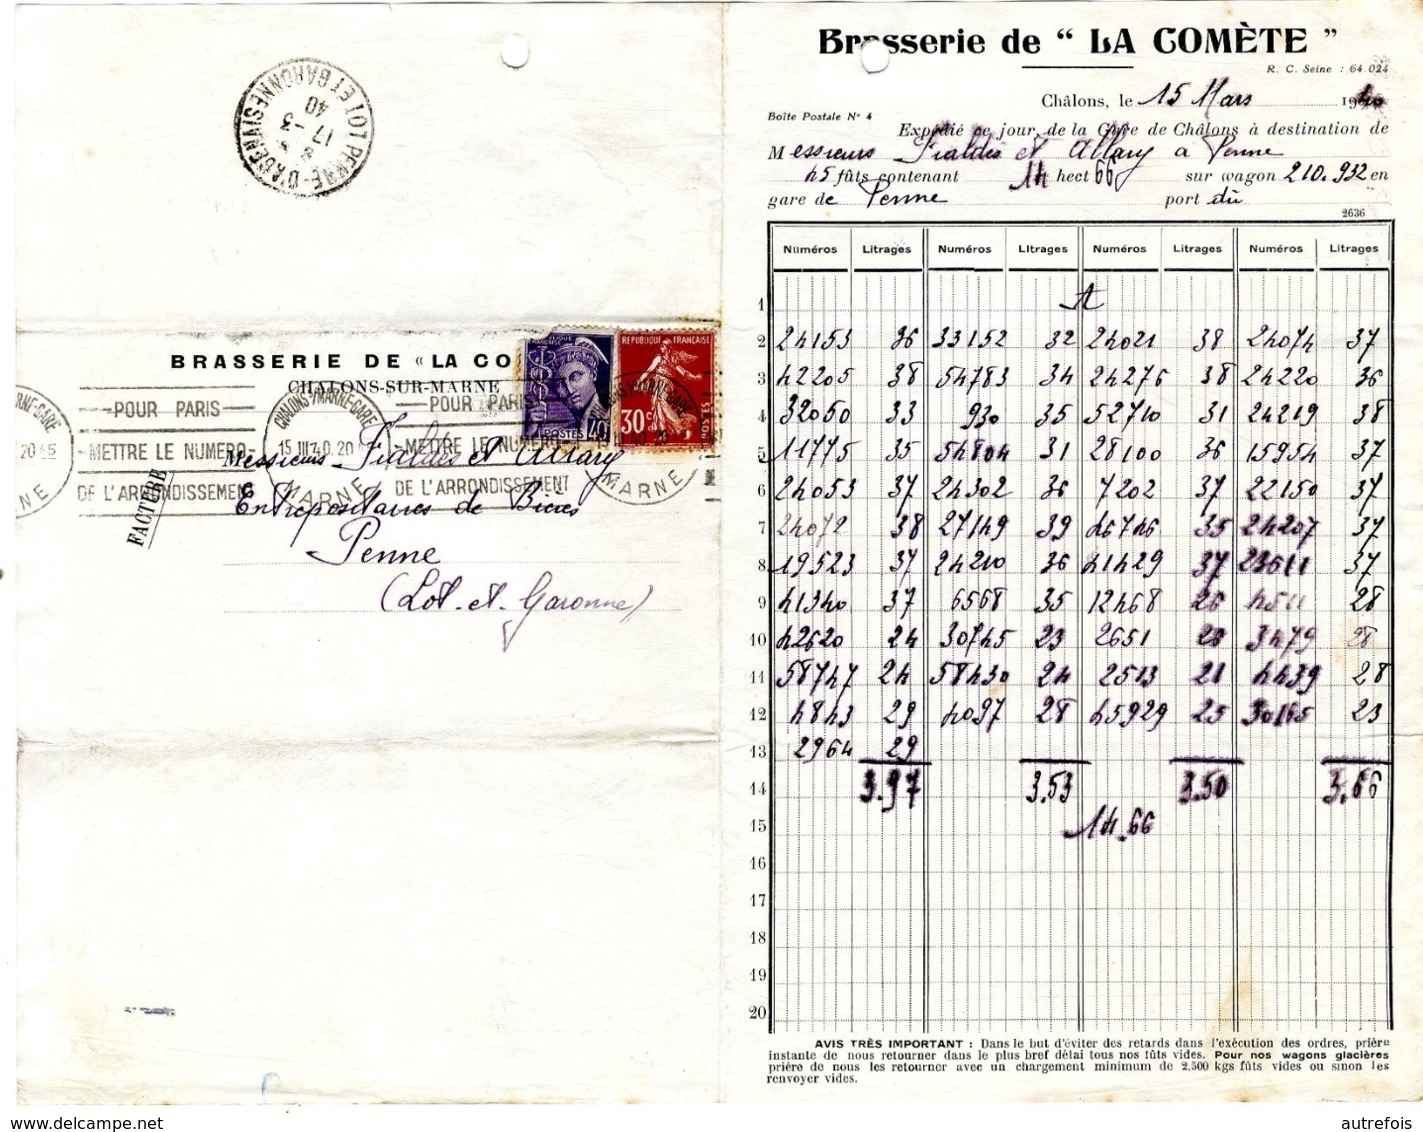 LOT ET GARONNE
PENNE-D'AGENAIS
17 - 3
40
BRASSERIE DE « LA CO
CHALONS-SUR-MARNE
POUR PARIS
METTRE LE NUMERO
DE L'ARRONDISSEMENT
CHALONS-S/MARNE-GARE
15 III 40. 20
MARNE
POUR PARIS
METTRE LE NUMERO
DE L'ARRONDISSEMENT
REPUBLIQUE FRANÇAISE
30c
POSTES
POSTES 40
FACTURE
Messieurs Fialdès et Allary
Entrepositaires de Bières
Penne
(Lot-et-Garonne)
Brasserie de “ LA COMÈTE ”
R. C. Seine : 64 024
Châlons, le 15 Mars 1940
Boîte Postale N° 4
Expédié ce jour, de la Gare de Châlons à destination de
Messieurs Fialdès et Allary à Penne
45 fûts contenant 14 hect 66 sur wagon 210.932 en
gare de Penne port dû
2636
Numéros Litrages Numéros Litrages Numéros Litrages Numéros Litrages
1 A
2 24153 36 33152 32 24021 38 24074 37
3 42205 38 54783 34 24276 38 24220 36
4 32050 33 930 35 52710 31 24219 38
5 11775 35 54804 31 28100 36 15954 37
6 24053 37 24302 36 7202 37 22150 37
7 24072 38 27149 39 46746 35 24207 37
8 19523 37 24210 36 41429 37 23611 37
9 41340 37 6568 35 12468 26 4511 28
10 42620 24 30745 23 2651 26 3479 28
11 58747 24 58430 24 2513 21 4439 28
12 4843 29 4097 28 45929 25 30165 23
13 2964 29
14 3.97 3.53 3.50 3.66
15 14.66
16
17
18
19
20
AVIS TRÈS IMPORTANT : Dans le but d'éviter des retards dans l'exécution des ordres, prière
instante de nous retourner dans le plus bref délai tous nos fûts vides. Pour nos wagons glacières
prière de nous les retourner avec un chargement minimum de 2.500 kgs fûts vides ou sinon les
renvoyer vides.
www.delcampe.net
autrefois